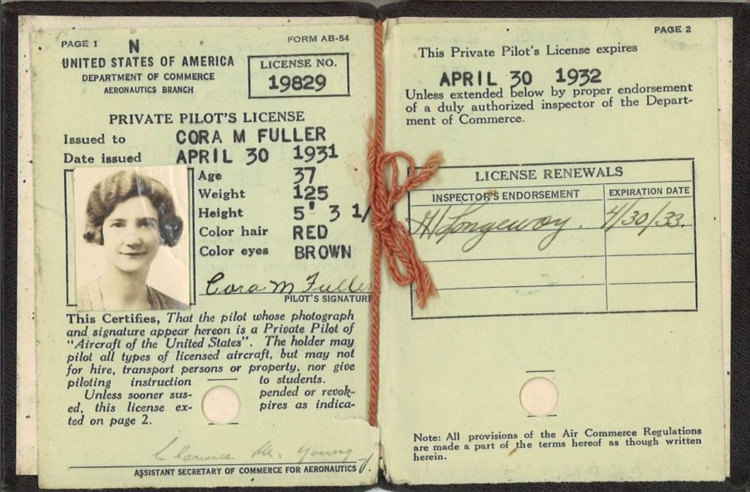 PAGE 1
N
FORM AB-54
UNITED STATES OF AMERICA
DEPARTMENT OF COMMERCE
AERONAUTICS BRANCH
LICENSE NO.
19829
PRIVATE PILOT'S LICENSE
Issued to CORA M FULLER
Date issued APRIL 30 1931
Age 37
Weight 125
Height 5' 3 1/
Color hair RED
Color eyes BROWN
Cora M Fuller
PILOT'S SIGNATURE
This Certifies, That the pilot whose photograph
and signature appear hereon is a Private Pilot of
"Aircraft of the United States". The holder may
pilot all types of licensed aircraft, but may not
for hire, transport persons or property, nor give
piloting instruction to students.
Unless sooner sus- pended or revok-
ed, this license ex- pires as indica-
ted on page 2.
Clarence M. Young
ASSISTANT SECRETARY OF COMMERCE FOR AERONAUTICS
PAGE 2
This Private Pilot's License expires
APRIL 30 1932
Unless extended below by proper endorsement
of a duly authorized inspector of the Depart-
ment of Commerce.
LICENSE RENEWALS
INSPECTOR'S ENDORSEMENT EXPIRATION DATE
Longeway. 4/30/33.
Note: All provisions of the Air Commerce Regulations
are made a part of the terms hereof as though written
herein.